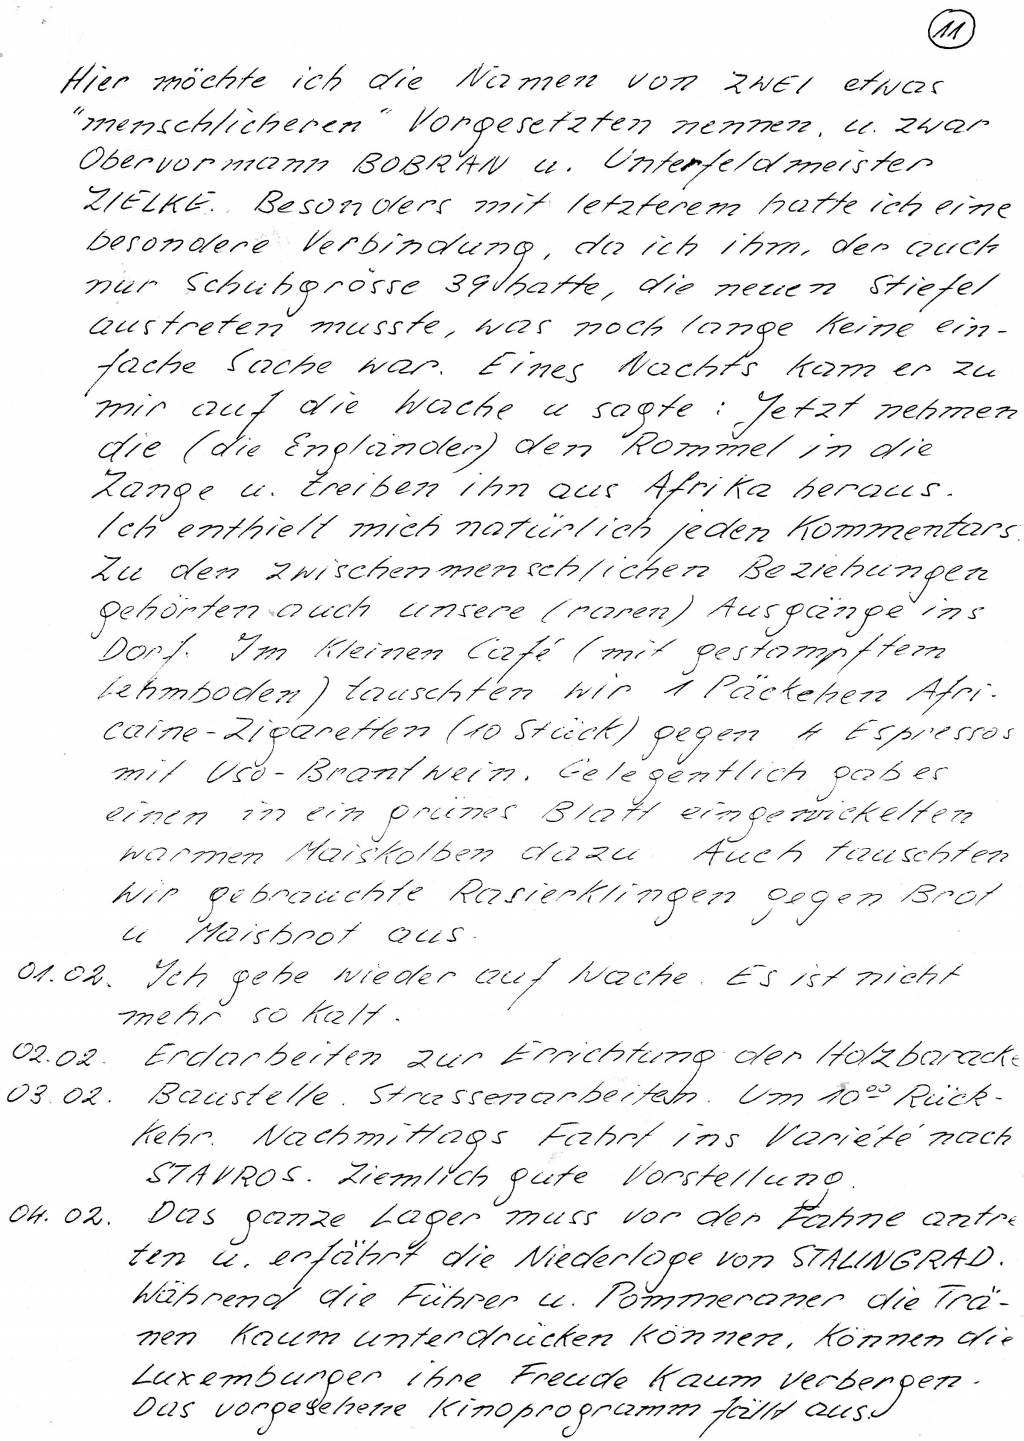 11
Hier möchte ich die Namen von ZWEI etwas
"menschlicheren" Vorgesetzten nennen, u. zwar
Obervormann BOBRAN u. Unterfeldmeister
ZIELKE. Besonders mit letzterem hatte ich eine
besondere Verbindung, da ich ihm, der auch
nur Schuhgrösse 39 hatte, die neuen Stiefel
austreten musste, was noch lange keine ein-
fache Sache war. Eines Nachts kam er zu
mir auf die Wache u sagte : Jetzt nehmen
die (die Engländer) den Rommel in die
Zange u. treiben ihn aus Afrika heraus.
Ich enthielt mich natürlich jeden Kommentars.
Zu den zwischenmenschlichen Beziehungen
gehörten auch unsere (raren) Ausgänge ins
Dorf. Im kleinen Café (mit gestampftem
Lehmboden) tauschten wir 1 Päckchen Afri-
caine-Zigaretten (10 Stück) gegen 4 Espressos
mit Uso-Brantwein. Gelegentlich gab es
einen in ein grünes Blatt eingewickelten
warmen Maiskolben dazu. Auch tauschten
wir gebrauchte Rasierklingen gegen Brot
u Maisbrot aus.
01.02. Ich gehe wieder auf Wache. Es ist nicht
mehr so kalt.
02.02. Erdarbeiten zur Errichtung der Holzbaracke
03.02. Baustelle. Strassenarbeiten. Um 10⁰⁰ Rück-
kehr. Nachmittags Fahrt ins Variété nach
STAVROS. Ziemlich gute Vorstellung.
04.02. Das ganze Lager muss vor der Fahne antre
ten u. erfährt die Niederlage von STALINGRAD.
Während die Führer u. Pommeraner die Trä-
nen kaum unterdrücken können, können die
Luxemburger ihre Freude kaum verbergen.
Das vorgesehene Kinoprogramm fällt aus.